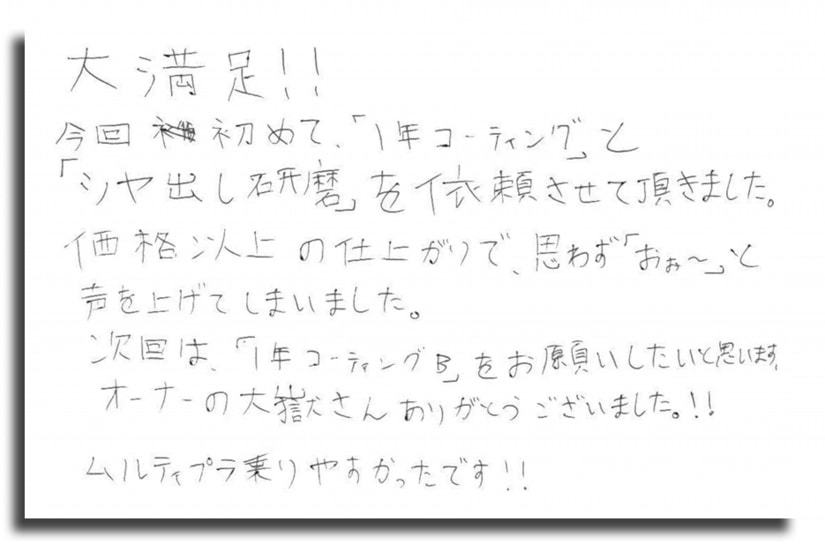 大満足!!
今回 初めて、「1年コーティング」と
「シヤ出し研磨」を依頼させて頂きました。
価格以上の仕上がりで、思わず「おぉ〜」と
声を上げてしまいました。
次回は、「1年コーティングB」をお願いしたいと思います。
オーナーの大嶽さんありがとうございました。!!
ムルティプラ乗りやすかったです!!